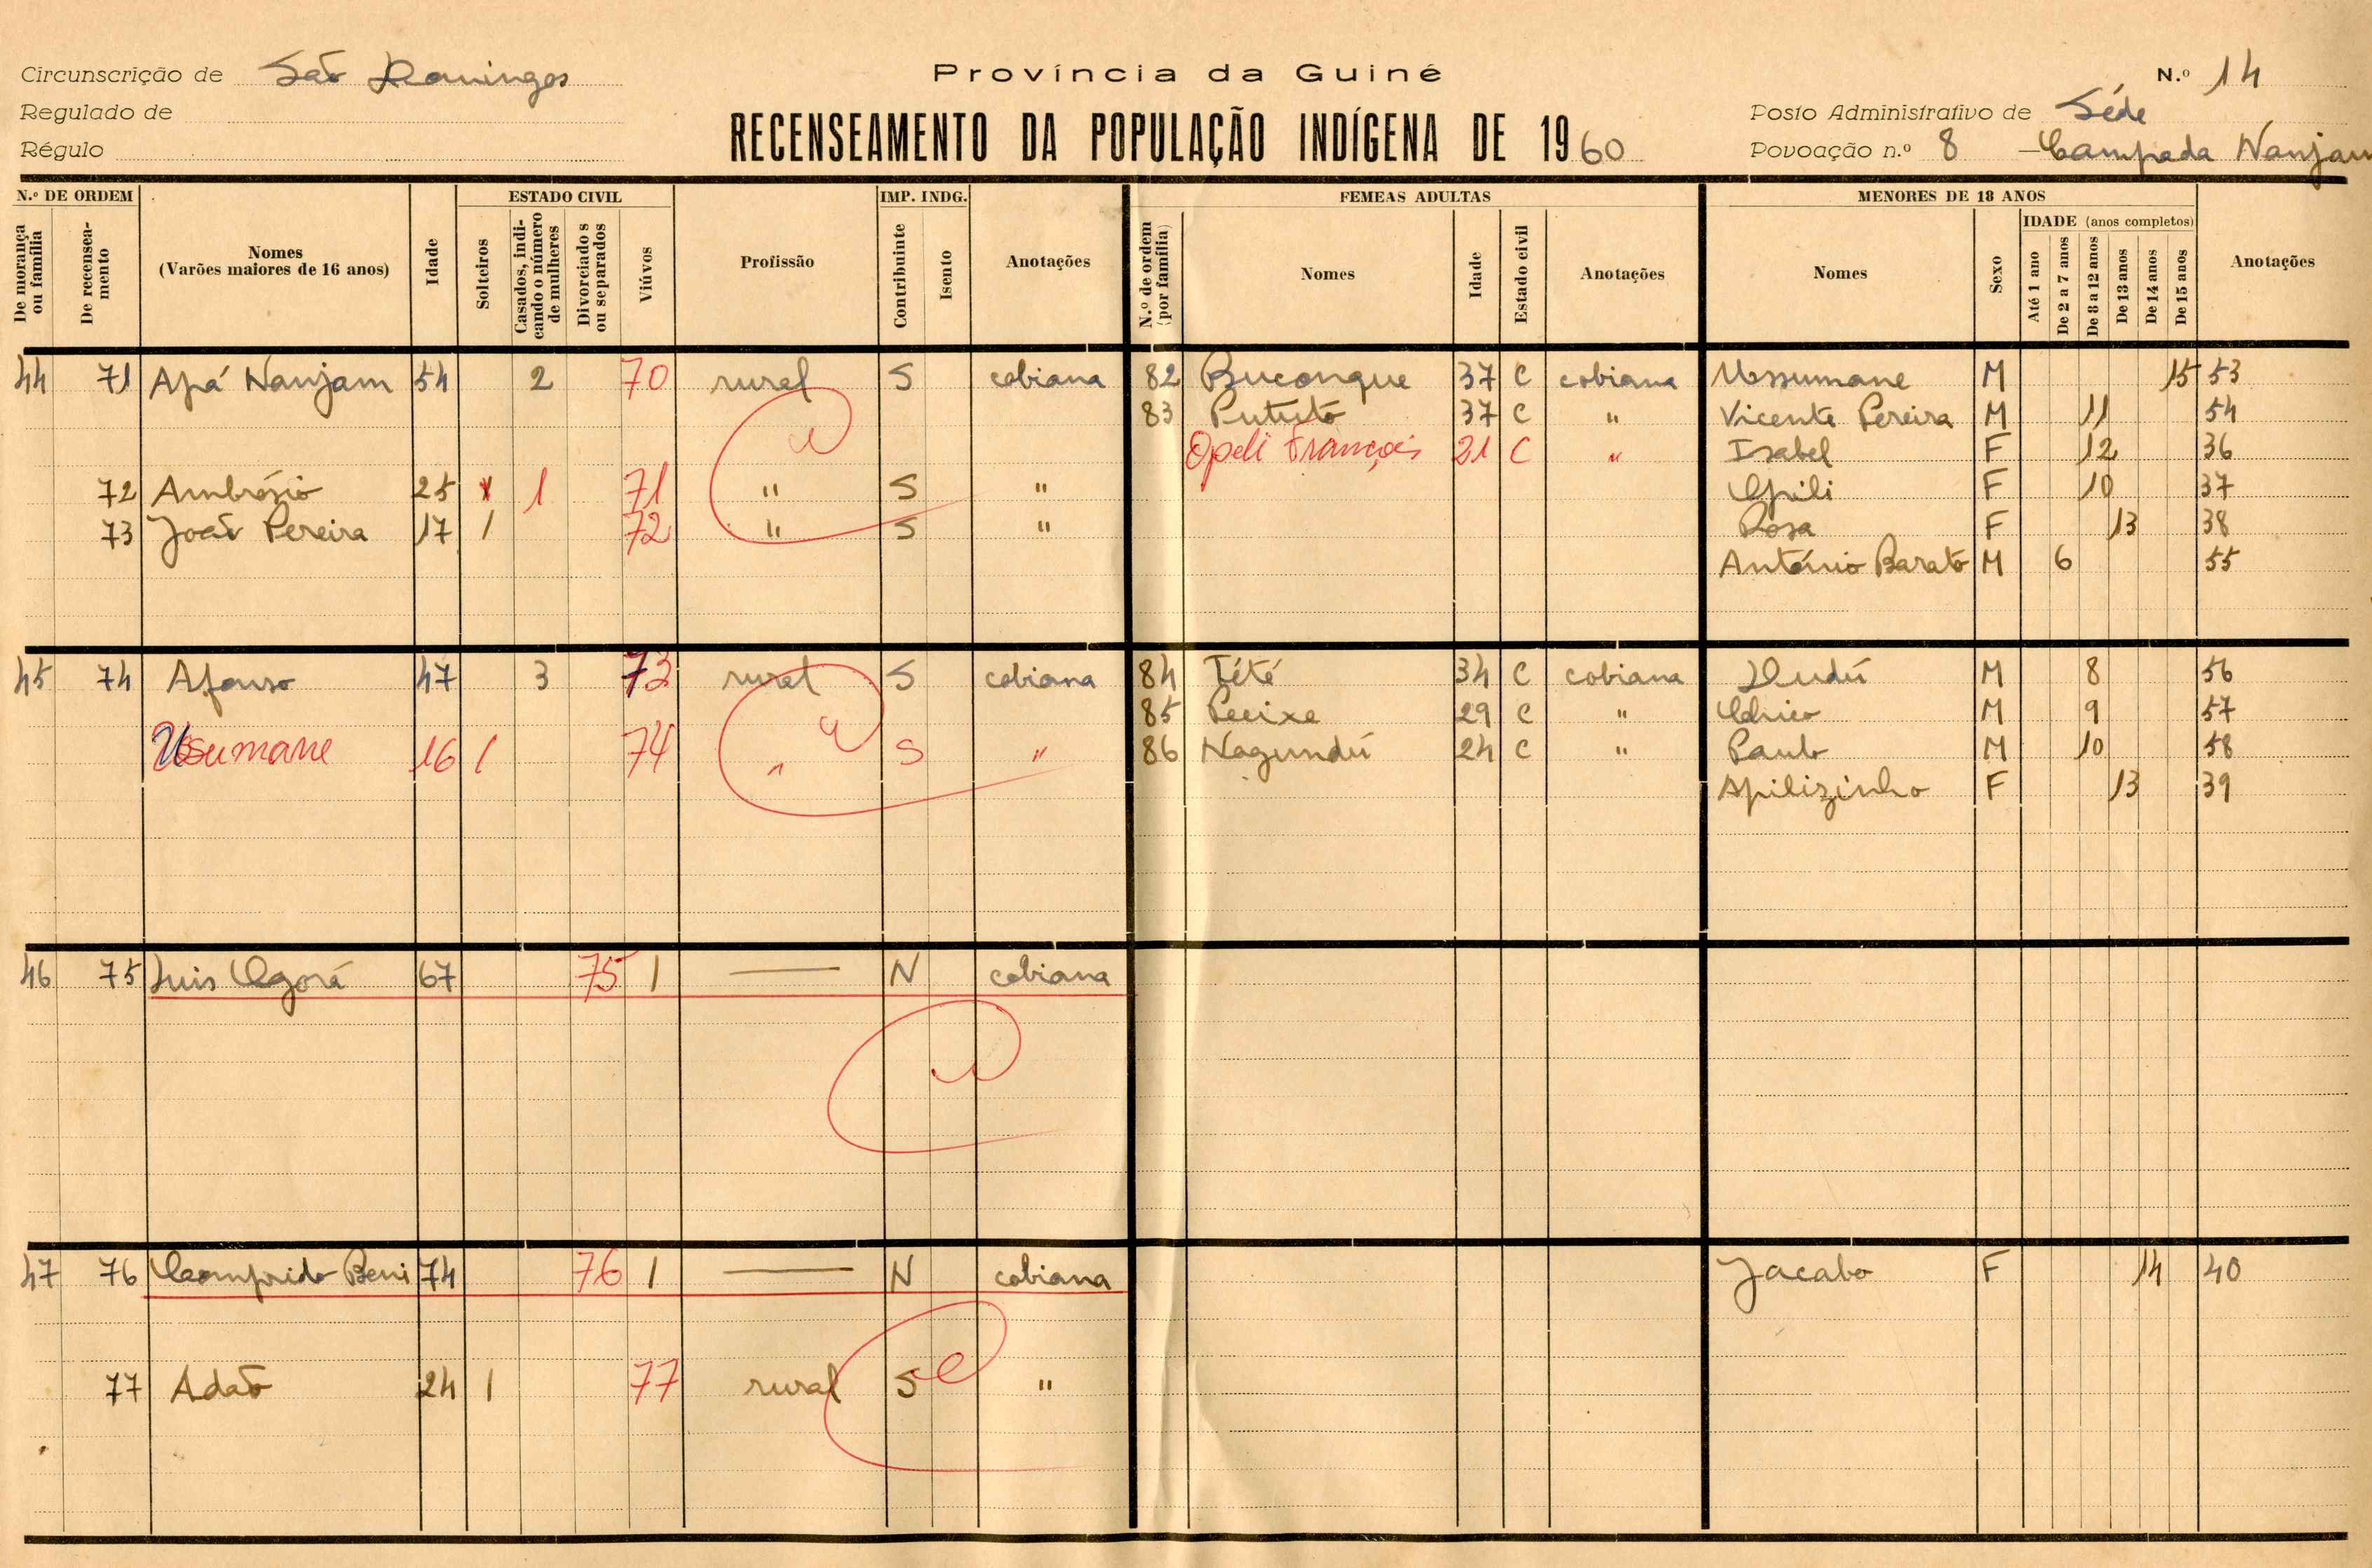 Circunscrição de São Domingos
Província da Guiné
N.º 14
Regulado de
RECENSEAMENTO DA POPULAÇÃO INDÍGENA DE 1960
Posto Administrativo de Séde
Régulo
Povoação n.º 8 - Campada Nanjam
N.º DE ORDEM ESTADO CIVIL IMP. INDG. FEMEAS ADULTAS MENORES DE 18 ANOS
IDADE (anos completos)
De morança ou família De recenseamento Nomes (Varões maiores de 16 anos) Idade Solteiros Casados, indicando o número de mulheres Divorciados ou separados Viúvos Profissão Contribuinte Isento Anotações N.º de ordem (por família) Nomes Idade Estado civil Anotações Nomes Sexo Até 1 ano De 2 a 7 anos De 8 a 12 anos De 13 anos De 14 anos De 15 anos Anotações
44 71 Apá Nanjam 54 2 70 rural S cobiana 82 Buconque 37 C cobiana Ussumane M 15 53
83 Pututo 37 C " Vicente Pereira M 11 54
Opeli François 21 C " Isabel F 12 36
72 Ambrósio 25 1 71 " S " F 10 37
73 João Pereira 17 1 72 " S " Rosa F 13 38
António Barato M 6 55
45 74 Afonso 47 3 73 rural S cobiana 84 Tété 34 C cobiana Dudú M 8 56
85 Pecixe 29 C " Chico M 9 57
Ussumane 16 1 74 " S " 86 Nagundú 24 C " Paulo M 10 58
Apilizinho F 13 39
46 75 Luis Agorá 67 75 1 — N cobiana
47 76 Comprido Beni 74 76 1 — N cobiana Jacabo F 14 40
77 Adão 24 1 77 rural S "